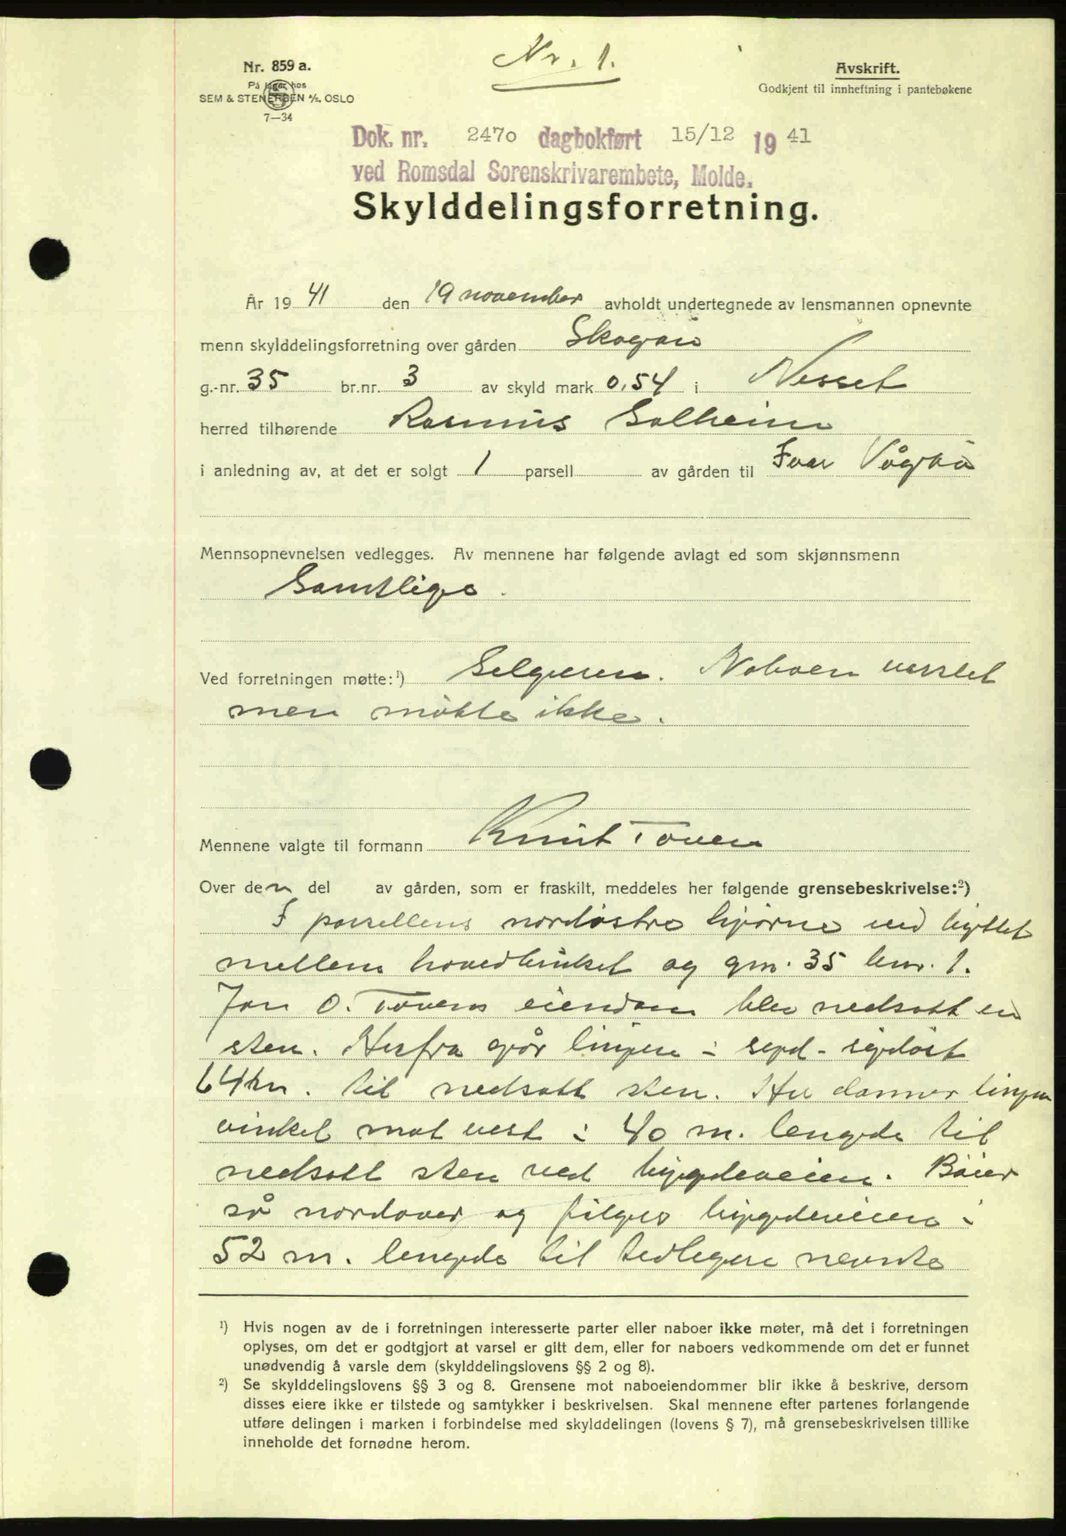 Nr. 1.
Nr. 859 a.
På lager hos
SEM & STENERSEN A/S. OSLO
7—34
Avskrift.
Godkjent til innheftning i pantebøkene
Dok. nr. 2470 dagbokført 15/12 1941
ved Romsdal Sorenskrivarembete, Molde.
Skylddelingsforretning.
År 1941 den 19 november avholdt undertegnede av lensmannen opnevnte
menn skylddelingsforretning over gården
g.-nr. 35 br.nr. 3 av skyld mark 0,54 i Nesset
herred tilhørende Rasmus Solheim
i anledning av, at det er solgt 1 parsell av gården til Ivar
Mennsopnevnelsen vedlegges. Av mennene har følgende avlagt ed som skjønnsmenn
Samtlige.
Ved forretningen møtte:¹) Selgeren. Naboen varslet
men møtte ikke.
Mennene valgte til formann Knut Toven
Over den del av gården, som er fraskilt, meddeles her følgende grensebeskrivelse:²)
I parsellens nordøstre hjørne ved byttet
mellem hovedbruket og gnr. 35 bnr. 1.
Jon O. Tovens eiendom blev nedsatt en
sten. Herfra går linjen i syd-sydøst
64 m. til nedsatt sten. Her danner linjen
vinkel mot vest i 40 m. lengde til
nedsatt sten ved bygdeveien. Bøier
så nordover og følger bygdeveien i
52 m. lengde til tidligere nevnte
¹) Hvis nogen av de i forretningen interesserte parter eller naboer ikke møter, må det i forretningen
oplyses, om det er godtgjort at varsel er gitt dem, eller for naboers vedkommende om det er funnet
unødvendig å varsle dem (skylddelingslovens §§ 2 og 8).
²) Se skylddelingslovens §§ 3 og 8. Grensene mot naboeiendommer blir ikke å beskrive, dersom
disses eiere ikke er tilstede og samtykker i beskrivelsen. Skal mennene efter partenes forlangende
utføre delingen i marken i forbindelse med skylddelingen (lovens § 7), må grensebeskrivelsen tillike
inneholde det fornødne herom.